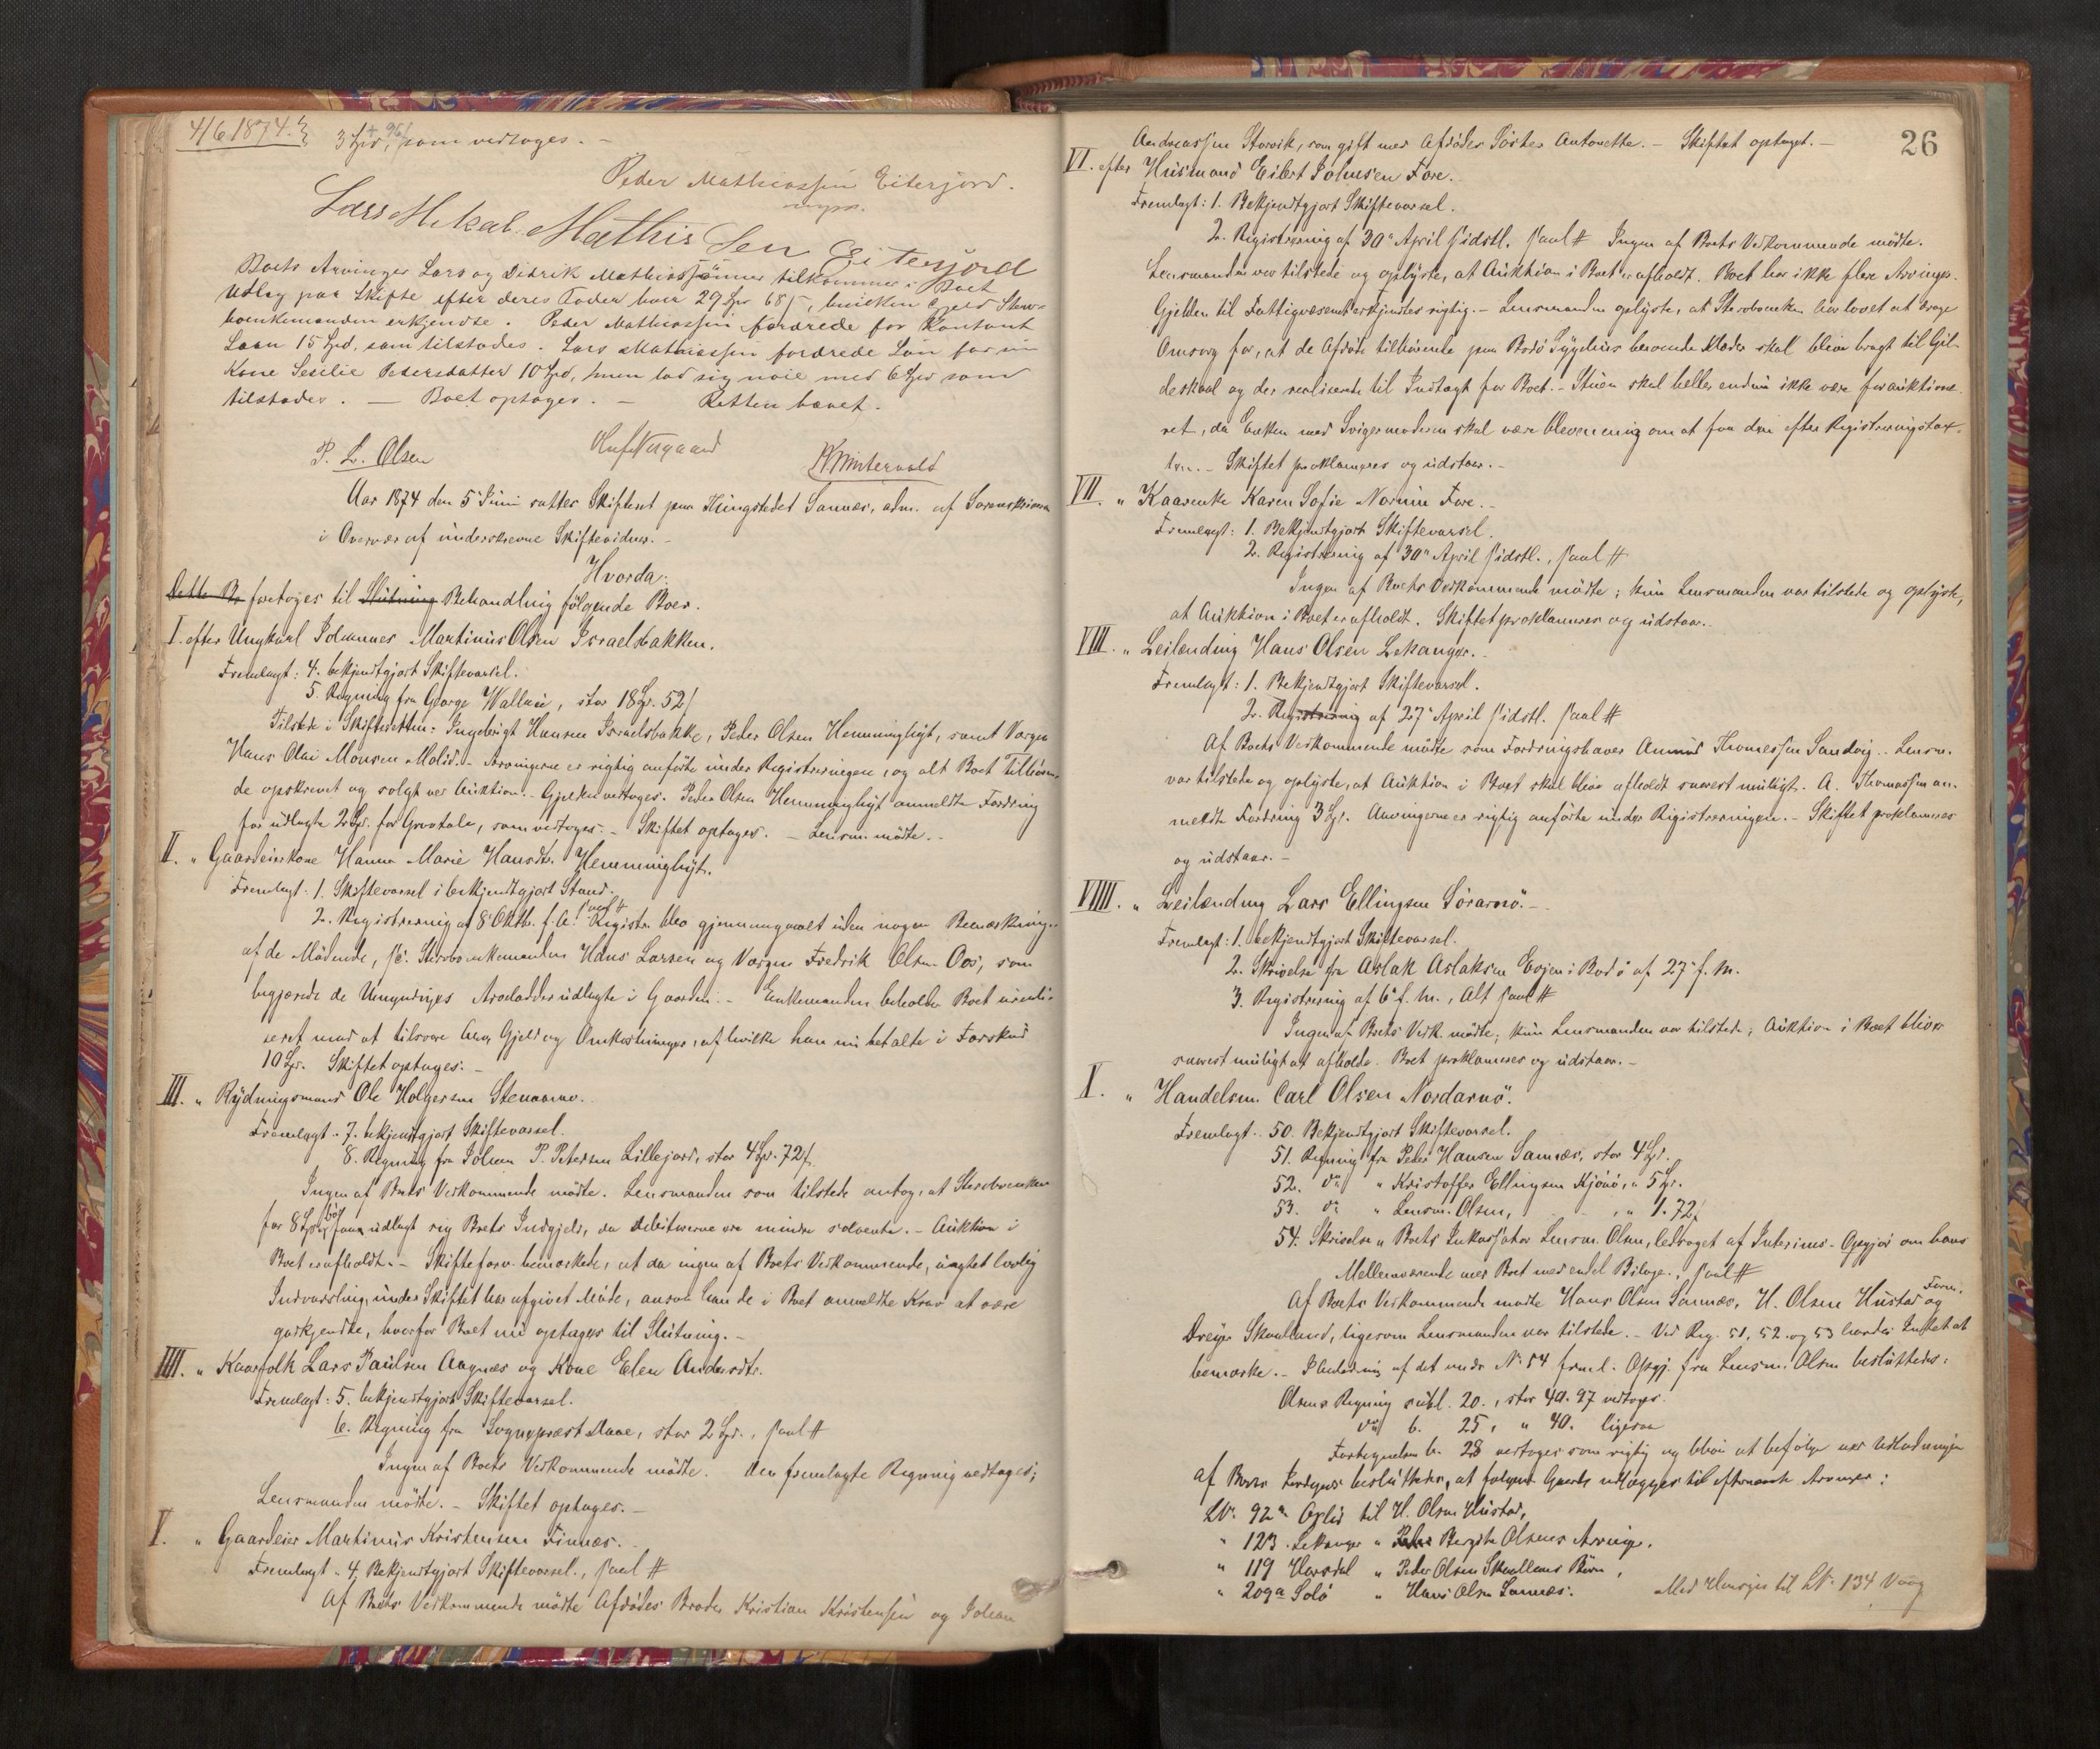 4/6 1874.
3 Spd, som vedtoges. –
Peder Mathiassen Eiterjord.
Lars Mekal Mathis Sen Eiterjord
Boets Arvinger Lars og Didrik Mathiassønner tilkommer i Boet
Udlæg paa Skifte efter deres Fader hver 29 Spd 68 ß, hvilken Gjeld Sterv-
boenkemanden erkjendte. Peder Mathiassen fordrede for Kontant
Laan 15 Spd, som tilstodes. Lars Mathiassen fordrede Løn for sin
Kone Sesilie Pedersdatter 10 Spd, men lod sig nøie med 6 Spd som
tilstodes. — Boet optages. – Retten hævet.
P. L. Olsen
Aar 1874 den 5 Juni sattes Skifteret paa Thingstedet Sannæs, adm. af Sorenskriveren
i Overvær af underskrevne Skiftevidner. –
Hvorda:
Dette Bo foretoges til Slutning Behandling følgende Boer.
I. efter Ungkarl Johannes Martinus Olsen Israelsbakken.
Fremlagt: 4. bekjendtgjort Skiftevarsel.
5. Regning fra George Wallan, stor 18 Sp. 52 ß
Tilstede i Skifteretten: Ingebrigt Hansen Israelsbakke, Peder Olsen Hemminghyt, samt Værgen
Hans Olai Monsen Molid. – Arvingerne er rigtig anførte under Registreringen, og alt Boet Tilhøren-
de opskrevet og solgt ved Auktion. – Gjælden vedtoges. Peder Olsen Hemminghyt anmeldte Fordring
for udlagte 2 Sp. for Gravøle, som vedtoges. – Skiftet optages. – Lensm. mødte. –
II. " Gaardeierkone Hanna Marie Hansdtr. Hemminghyt.
Fremlagt: 1. Skiftevarsel i bekjendtgjort Stand.
2. Registrering af 8 Oktb. f. A. Registr. blev gjennemgaaet uden nogen Bemærkning
af de Mødende, Stervboenkemanden Hans Larsen og Værgen Fredrik Olsen Oos, som
begjærede de Umyndiges Arvelodder udlagte i Gaarden. – Enkemanden beholder Boet
seret mod at tilsvare Gjeld og Omkostninger, af hvilke han nu betalte i Forskud
10 Sp. Skiftet optages. –
III. " Rydningsmand Ole Holgersen Stenaamo.
Fremlagt: 7. bekjendtgjort Skiftevarsel.
8. Regning fra Johan P. Petersen Lillejord, stor 4 Sp. 72 ß
Ingen af Boets Vedkommende mødte. Lensmanden som tilstede antog, at Stervboenken
for 8 Sp. bør faa udlagt sig Boets Indgjeld, da Debitorerne ere mindre solvente. – Auktion i
Boet er afholdt. – Skifteforv. bemærkede, at da ingen af Boets Vedkommende, uagtet lovlig
Indvarsling, under Skiftet har afgivet Møde, ansaa han de i Boet anmeldte Krav at være
godkjendte, hvorfor Boet nu optages til Slutning. –
IIII. " Kaarfolk Lars Paulsen Aagnæs og Kone Elen Andersdtr.
Fremlagt: 5. bekjendtgjort Skiftevarsel.
6. Regning fra Sogneprest Aaae, stor 2 Sp.
Ingen af Boets Vedkommende mødte. Den fremlagte Regning vedtages;
Lensmanden mødte. – Skiftet optages. –
V. " Gaardeier Martinus Kristensen Finnæs. –
Fremlagt: 4. Bekjendtgjort Skiftevarsel.
Af Boets Vedkommende mødte Afdødes Broder Kristian Kristensen og Johan
26
Andreassen Storvik, som gift med Afdødes Søster Antonette. – Skiftet optaget. –
VI. efter Husmand Eilert Johnsen Fore.
Fremlagt: 1. Bekjendtgjort Skiftevarsel.
2. Registrering af 30 April sidstl. Ingen af Boets Vedkommende mødte.
Lensmanden var tilstede og oplyste, at Auktion i Boet er afholdt. Boet har ikke flere Arvinger.
Gjelden til Fattigvæsenet erkjendtes rigtig. – Lensmanden oplyste, at Stervboenken har lovet at drage
Omsorg for, at de Afdøde tilhørende paa Bodø Sygehus beroende Klæder skal blive bragt til Gil-
deskaal og der realiserede til Indtægt for Boet. – Stuen skal heller endnu ikke være forauktione-
ret, da Enken med Svigermoderen skal være bleven enig om at faa den efter Registreringstax-
ten. – Skiftet proklameres og udstaar. –
VII. " Kaarenke Karen Sofie Fore. –
Fremlagt: 1. Bekjendtgjort Skiftevarsel.
2. Registrering af 30 April sidstl.
Ingen af Boets Vedkommende mødte; kun Lensmanden var tilstede og oplyste,
at Auktion i Boet er afholdt. Skiftet proklameres og udstaar. –
VIII. " Leilænding Hans Olsen Lekanger. –
Fremlagt: 1. Bekjendtgjort Skiftevarsel.
2. Registrering af 27 April sidstl.
Af Boets Vedkommende mødte som Fordringshaver Thomassen Sandvig. – Lensm.
var tilstede og oplyste, at Auktion i Boet skal blive afholdt snarest muligt. A. Thomassen an-
meldte Fordring 3 Sp. Arvingerne er rigtig anførte under Registreringen. – Skiftet proklameres
og udstaar. –
VIIII. " Leilænding Lars Ellingsen Sørarnø. –
Fremlagt: 1. bekjendtgjort Skiftevarsel.
2. Skrivelse fra Aslak Aslaksen Evjen i Bodø af 27 f. M.
3. Registrering af 6 f. M., Alt
Ingen af Boets Vedk. mødte; kun Lensmanden var tilstede; Auktion i Boet bliver
snarest muligt at afholde. Boet proklameres og udstaar. –
X. " Handelsm. Carl Olsen Nordarnø.
Fremlagt: 50. Bekjendtgjort Skiftevarsel.
51. Regning fra Peder Hansen Sannæs, stor 4 Sp.
52. do " Kristoffer Ellingsen Kjøsø, " 5 Sp.
53. do " Lensm. Olsen, " 1. 72 ß
54. Skrivelse " Boets Inkassator Lensm. Olsen, ledsaget af Interims-Opgjør om hans
Mellemværende med Boet med endel Bilage.
Af Boets Vedkommende mødte Hans Olsen Sannæs, H. Olsen Hustad og
Dreyer Skaallund, ligesom Lensmanden var tilstede. – Ved Reg. 51, 52 og 53 havdes Intet at
bemærke. – I Anledning af det under No 54 freml. Opgj. fra Lensm. Olsen besluttedes:
Olsens Regning 20, stor 40. 97 vedtoges.
do b. 25, " 40. ligesaa
Fortegnelsen b. 28 vedtoges som rigtig og bliver at befølge ved Udlodningen
Af Boets Jordegods besluttedes, at følgende Gaarde udlægges til efternævnte Arvinger:
LNr. 92 a til H. Olsen Hustad,
" 123 Lekanger " Bergite Olsens Arvinger.
" 119 " Peder Olsen Børn,
" 209 a Solø " Hans Olsen Sannæs. Med Hensyn til LNr. 134 Vaag